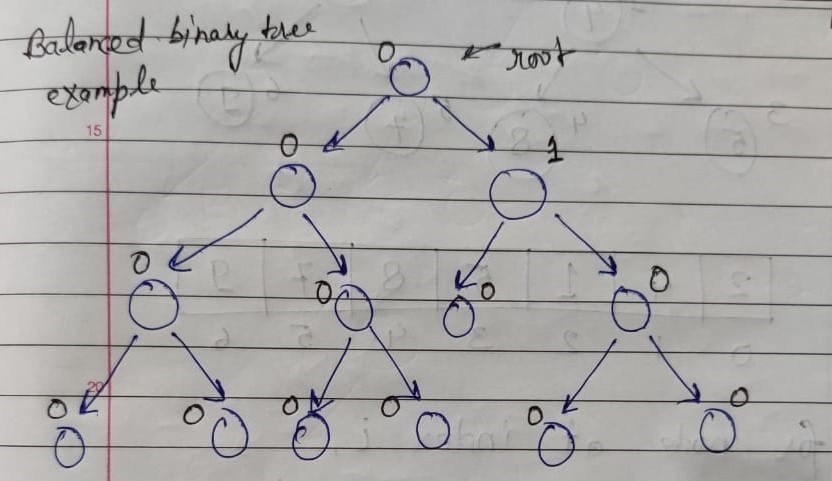 Balanced binary tree
example
0 ← root
15
0 1
0 0 0 0
20
0 0 0 0 0 0